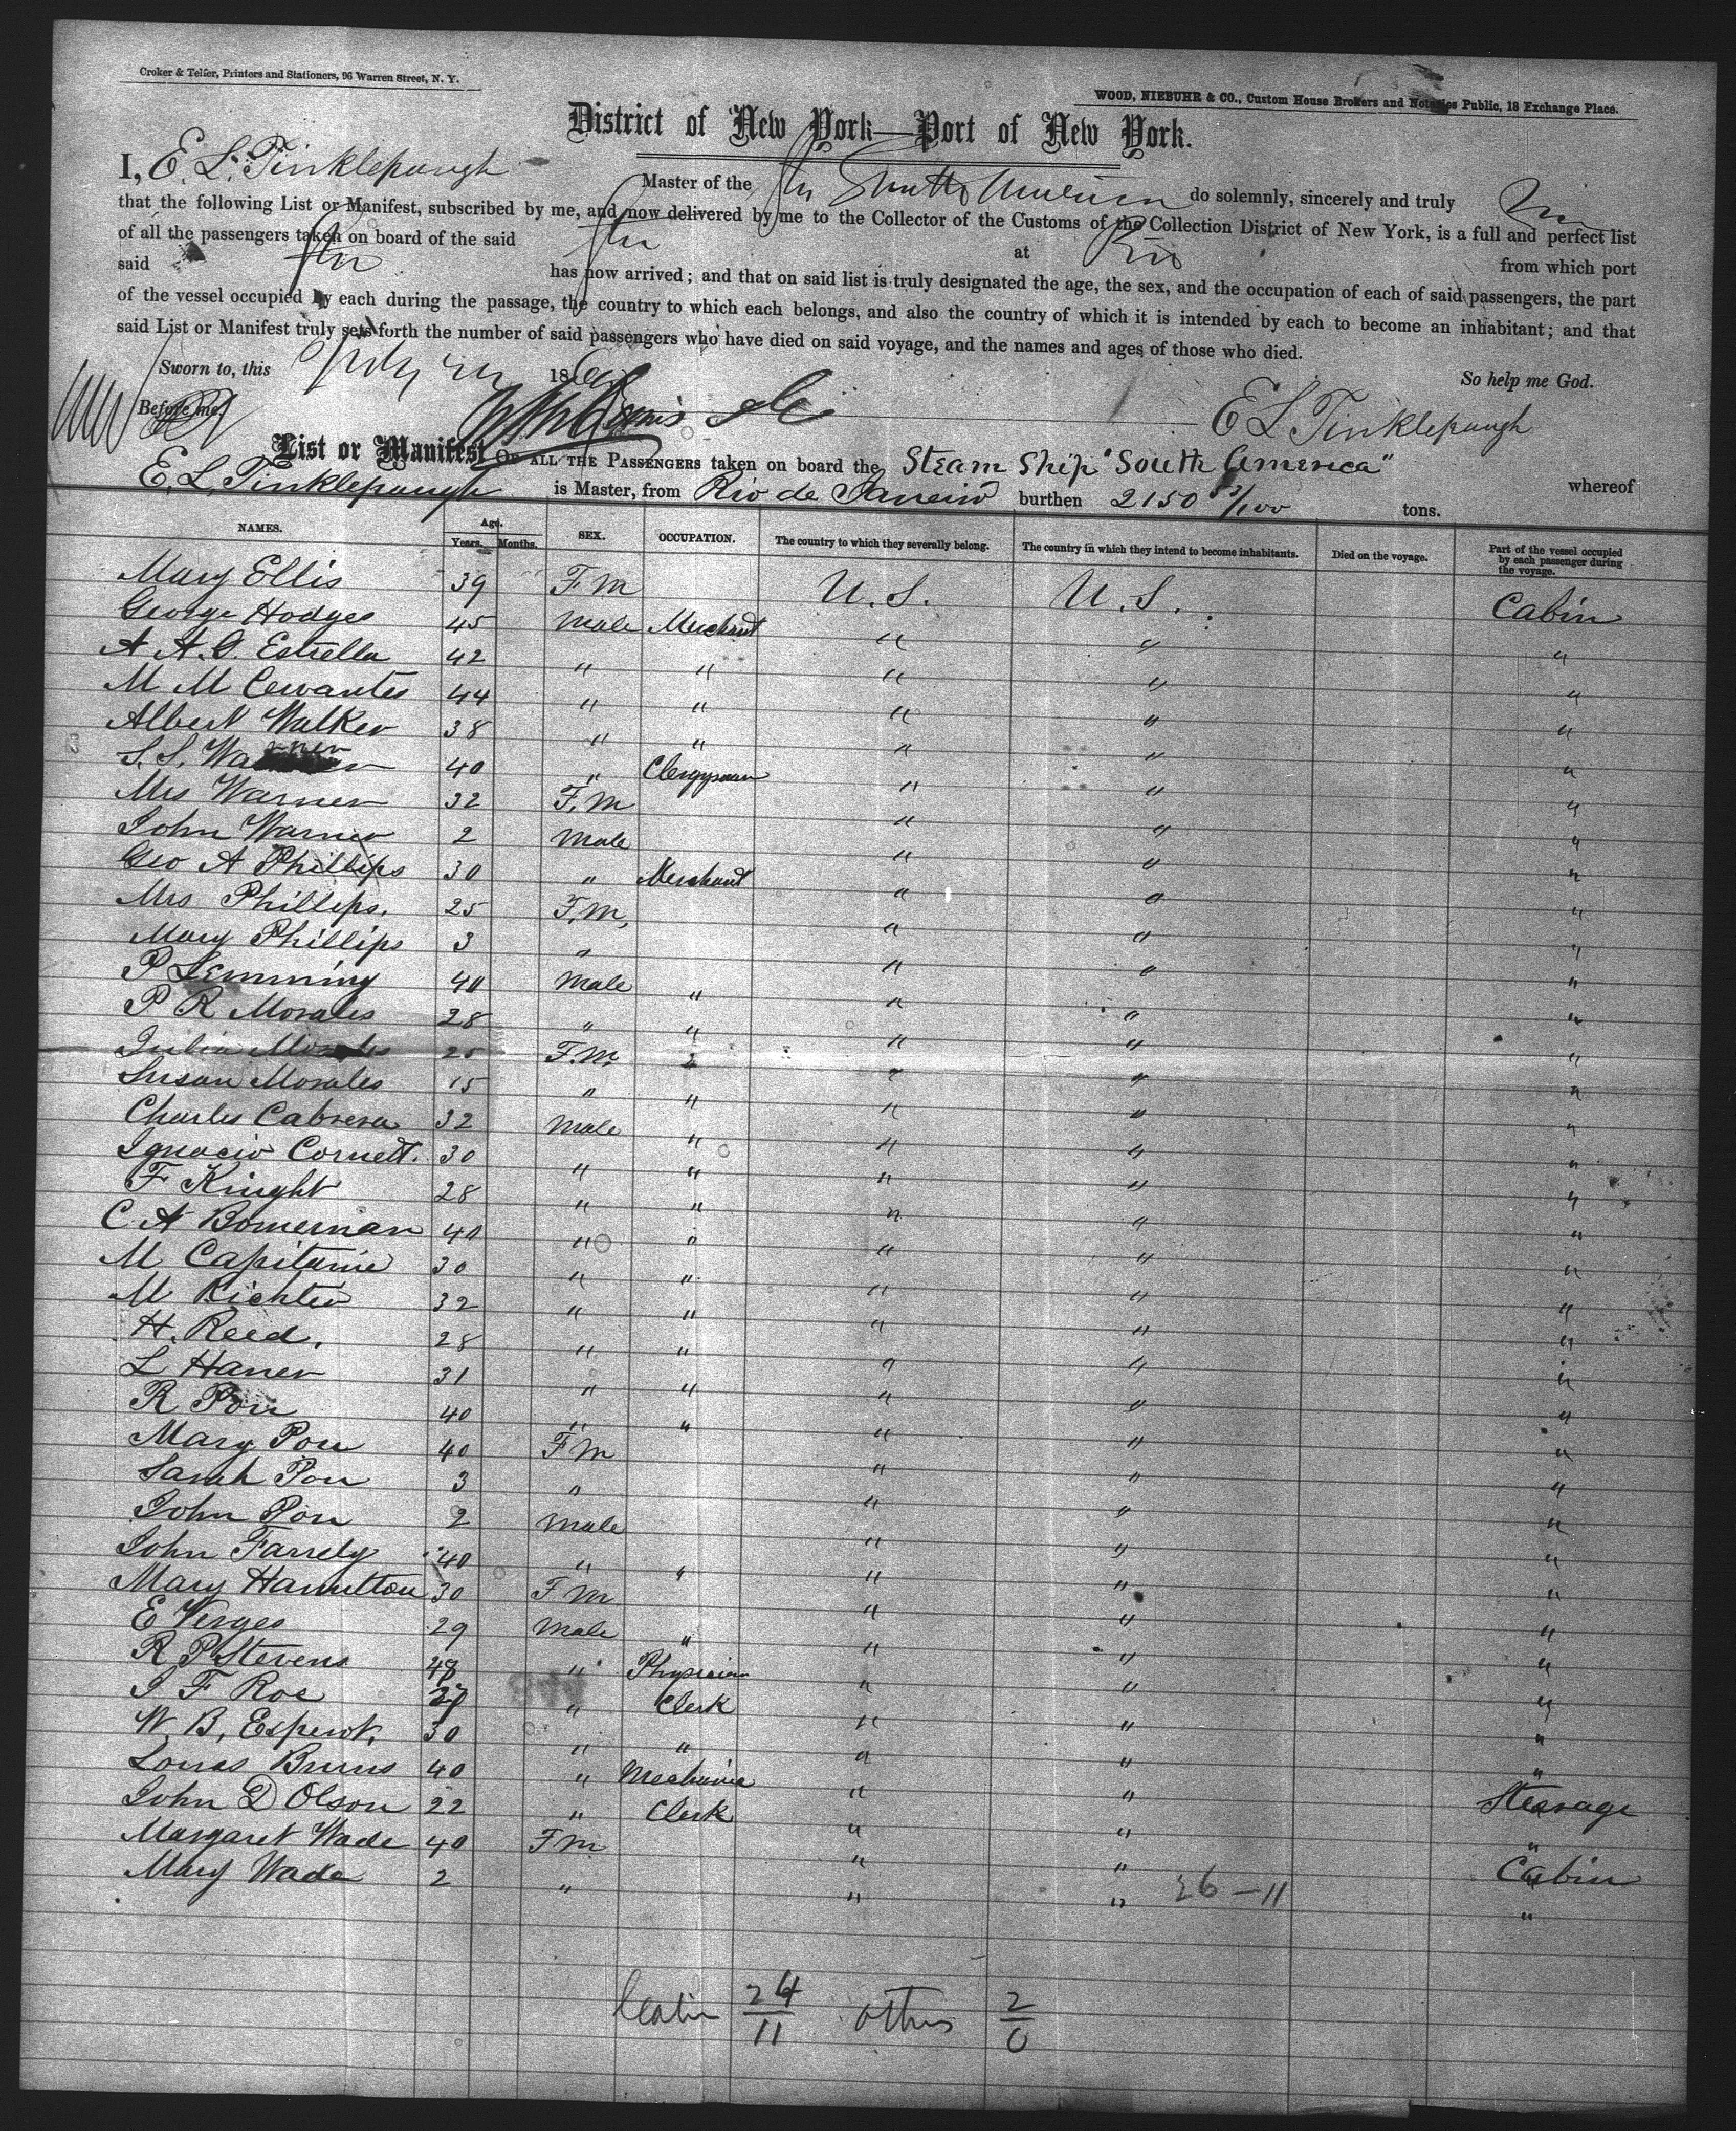 Croker & Telfer, Printers and Stationers, 96 Warren Street, N. Y.
WOOD, NIEBUHR & CO., Custom House Brokers and Notaries Public, 18 Exchange Place.
District of New York—Port of New York.
I, E. L. Tinklepaugh Master of the Str South America do solemnly, sincerely and truly
that the following List or Manifest, subscribed by me, and now delivered by me to the Collector of the Customs of the Collection District of New York, is a full and perfect list
of all the passengers taken on board of the said Str at Rio from which port
said Str has now arrived; and that on said list is truly designated the age, the sex, and the occupation of each of said passengers, the part
of the vessel occupied by each during the passage, the country to which each belongs, and also the country of which it is intended by each to become an inhabitant; and that
said List or Manifest truly sets forth the number of said passengers who have died on said voyage, and the names and ages of those who died.
Sworn to, this 186 So help me God.
Before me, E L Tinklepaugh
List or Manifest OF ALL THE PASSENGERS taken on board the Steam Ship "South America" whereof
E. L. Tinklepaugh is Master, from Rio de Janeiro burthen 2150 tons.
NAMES. Age. Years. Months. SEX. OCCUPATION. The country to which they severally belong. The country in which they intend to become inhabitants. Died on the voyage. Part of the vessel occupied by each passenger during the voyage.
Mary Ellis 39 F M U. S. U. S. Cabin
George Hodges 45 Male Merchant " " "
A A. G. Estrella 42 " " " " "
M M Cervantes 44 " " " " "
Albert Walker 38 " " " " "
S. S. Warner 40 " Clergyman " " "
Mrs Warner 32 F. M " " "
John Warner 2 Male " " "
Geo A Phillips 30 " Merchant " " "
Mrs Phillips. 25 F. M. " " "
Mary Phillips 3 " " " "
P Lemming 40 Male " " " "
P R Morales 28 " " " " "
Julia Morales 25 F. M. " " " "
Susan Morales 15 " " " " "
Charles Cabrera 32 Male " " " "
Ignacio Cornett. 30 " " " " "
F Knight 28 " " " " "
C. A Bomeman 40 " " " " "
M Capitanie 30 " " " " "
M Richter 32 " " " " "
H. Reed. 28 " " " " "
L Haner 31 " " " " "
R Pon 40 " " " " "
Mary Pon 40 F M " " "
Sarah Pon 3 " " " "
John Pon 2 Male " " "
John Farrely 40 " " " " "
Mary Hamilton 30 F M " " "
E Verges 29 Male " " " "
R P Stevens 48 " Physician " " "
J F Roe 27 " Clerk " " "
W. B. 30 " " " " "
Louas Bruns 40 " Mechanic " " Steerage
John D Olson 22 " Clerk " " "
Margaret Wade 40 F M " " Cabin
Mary Wade 2 " " " "
26 – 11
Cabin 24/11 others 2/0